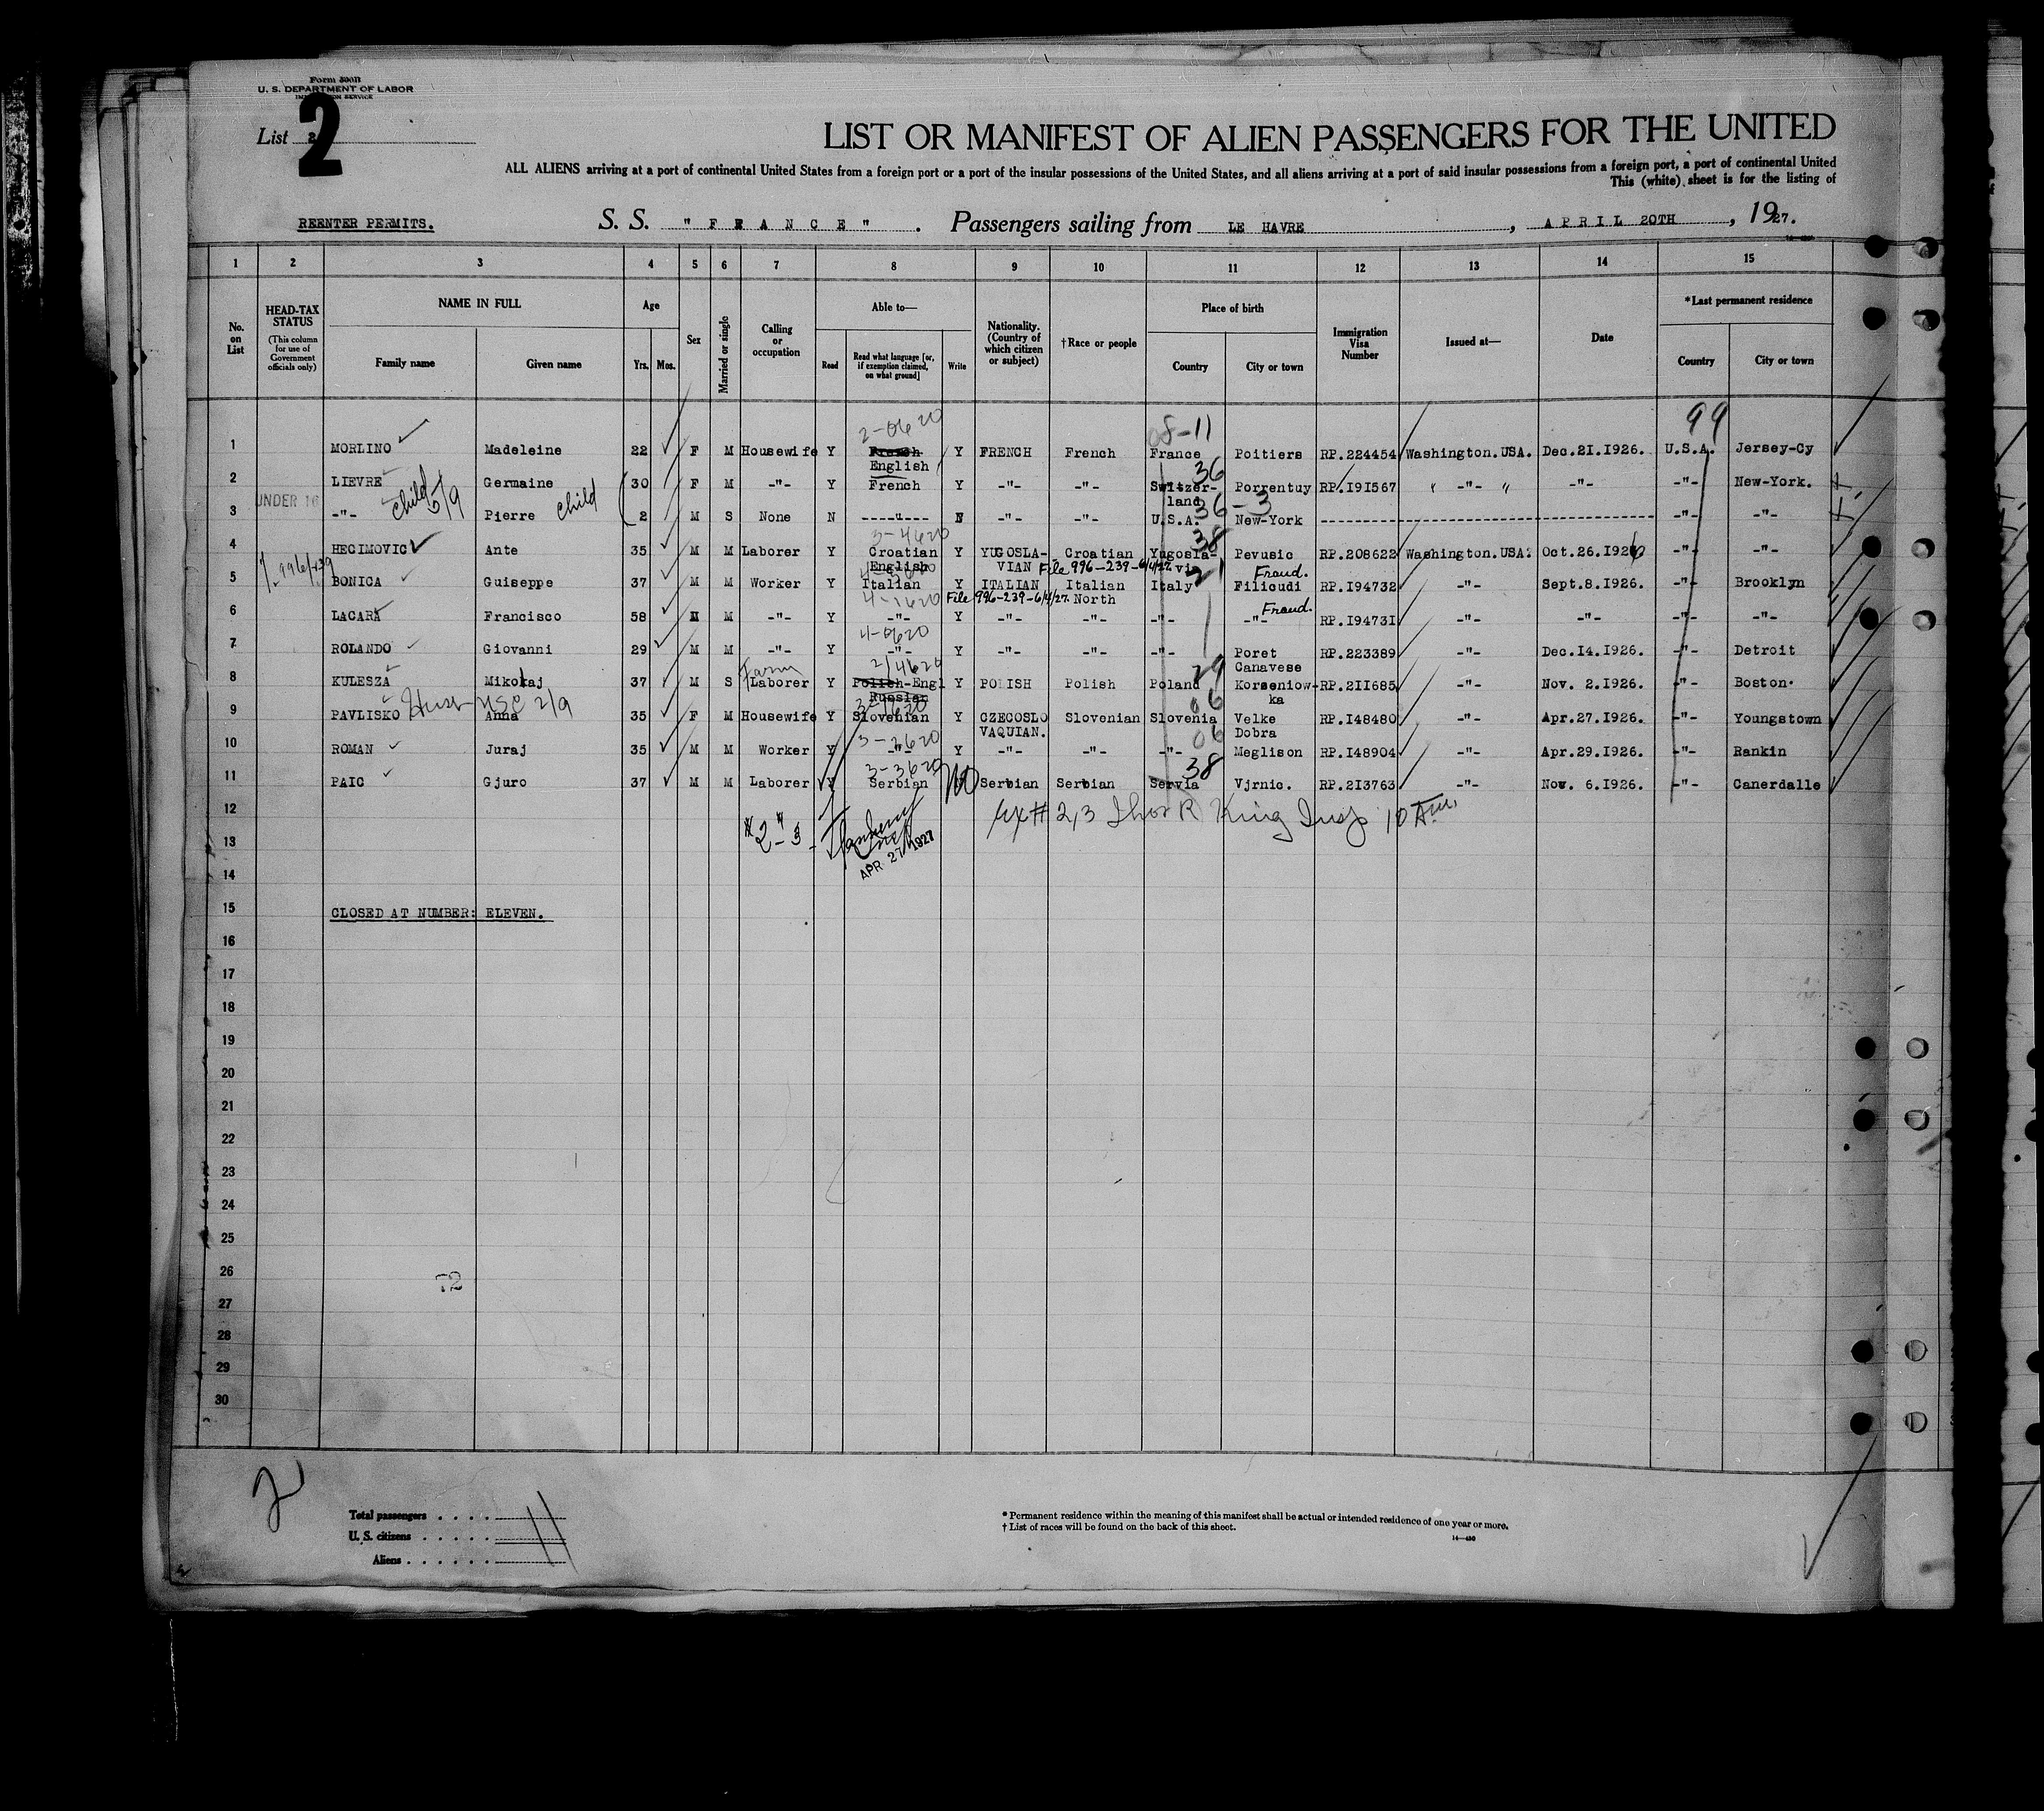 Form 500B
U. S. DEPARTMENT OF LABOR
IMMIGRATION SERVICE
List 2
2
LIST OR MANIFEST OF ALIEN PASSENGERS FOR THE UNITED
ALL ALIENS arriving at a port of continental United States from a foreign port or a port of the insular possessions of the United States, and all aliens arriving at a port of said insular possessions from a foreign port, a port of continental United
This (white) sheet is for the listing of
REENTER PERMITS. S. S. " F R A N C E " . Passengers sailing from LE HAVRE , APRIL 20TH , 1927.
1 2 3 4 5 6 7 8 9 10 11 12 13 14 15
No. on List
HEAD-TAX STATUS (This column for use of Government officials only)
NAME IN FULL
Family name Given name
Age
Yrs. Mos.
Sex
Married or single
Calling or occupation
Able to—
Read Read what language [or, if exemption claimed, on what ground] Write
Nationality. (Country of which citizen or subject)
†Race or people
Place of birth
Country City or town
Immigration Visa Number
Issued at—
Date
*Last permanent residence
Country City or town
2-0620 08-11 99
1 MORLINO Madeleine 22 F M Housewife Y French English Y FRENCH French France Poitiers RP.224454 Washington.USA. Dec.21.I926. U.S.A. Jersey-Cy
36
2 LIEVRE Germaine 30 F M -"- Y French Y -"- -"- Switzer-land Porrentuy RP.I9I567 -"- -"- -"- New-York.
UNDER 16 child 5/9 child 36-3
3 -"- Pierre 2 M S None N ----"---- N -"- -"- U.S.A. New-York -"- -"-
3-4620 38
4 HECIMOVIC Ante 35 M M Laborer Y Croatian English Y YUGOSLA-VIAN Croatian Yugosla-via Pevusic RP.208622 Washington.USA. Oct.26.I926 -"- -"-
996/239 File 996-239-6/4/27. 21 Fraud.
5 BONICA Guiseppe 37 M M Worker Y Italian Y ITALIAN Italian North Italy Filicudi RP.I94732 -"- Sept.8.I926. -"- Brooklyn
File 996-239-6/4/27. Fraud.
6 LACARA Francisco 58 M M -"- Y -"- Y -"- -"- -"- -"- RP.I9473I -"- -"- -"- -"-
4-0620
7 ROLANDO Giovanni 29 M M -"- Y -"- Y -"- -"- -"- Poret Canavese RP.223389 -"- Dec.I4.I926. -"- Detroit
Farm 2/4620 29
8 KULESZA Mikołaj 37 M S Laborer Y Polish-Engl Russian Y POLISH Polish Poland Korseniow-ka RP.2II685 -"- Nov. 2.I926. -"- Boston.
Husb USC 2/9 06
9 PAVLISKO Anna 35 F M Housewife Y Slovenian Y CZECOSLO VAQUIAN. Slovenian Slovenia Velke Dobra RP.I48480 -"- Apr.27.I926. -"- Youngstown
3-2620 06
10 ROMAN Juraj 35 M M Worker Y -"- Y -"- -"- -"- Meglison RP.I48904 -"- Apr.29.I926. -"- Rankin
3-3620 38
11 PAIC Gjuro 37 M M Laborer Y Serbian NO Serbian Serbian Servia Vjrnic. RP.2I3763 -"- Nov. 6.I926. -"- Canerdalle
12 #2-3 King Insp 10 Am.
13 APR 27 1927
14
15 CLOSED AT NUMBER: ELEVEN.
16
17
18
19
20
21
22
23
24
25
26 72
27
28
29
30
2
Total passengers . . . .
U. S. citizens . . . . . 11
Aliens . . . . . .
* Permanent residence within the meaning of this manifest shall be actual or intended residence of one year or more.
† List of races will be found on the back of this sheet.
14—430